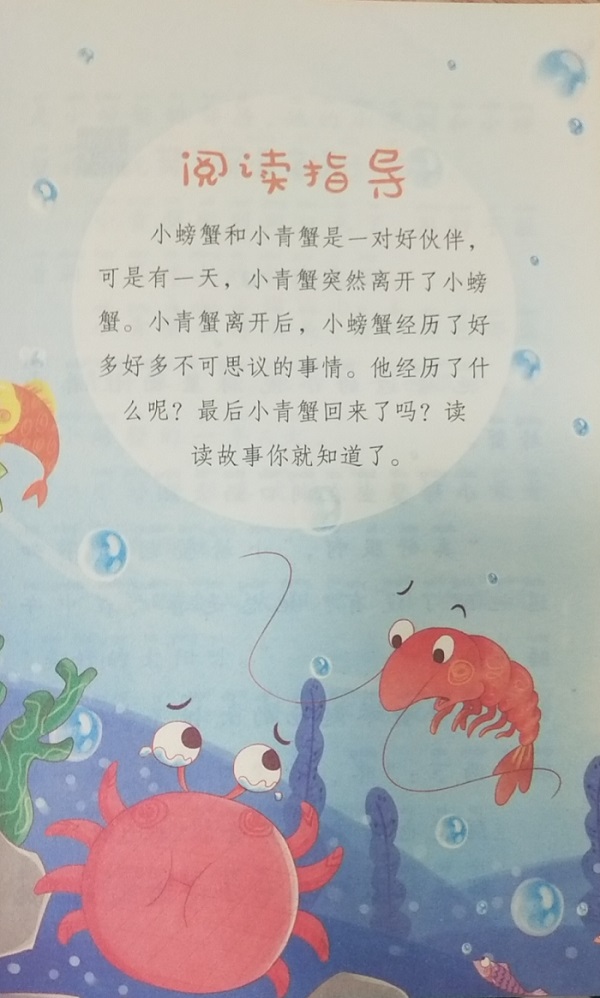 阅读指导
小螃蟹和小青蟹是一对好伙伴，
可是有一天，小青蟹突然离开了小螃
蟹。小青蟹离开后，小螃蟹经历了好
多好多不可思议的事情。他经历了什
么呢？最后小青蟹回来了吗？读
读故事你就知道了。